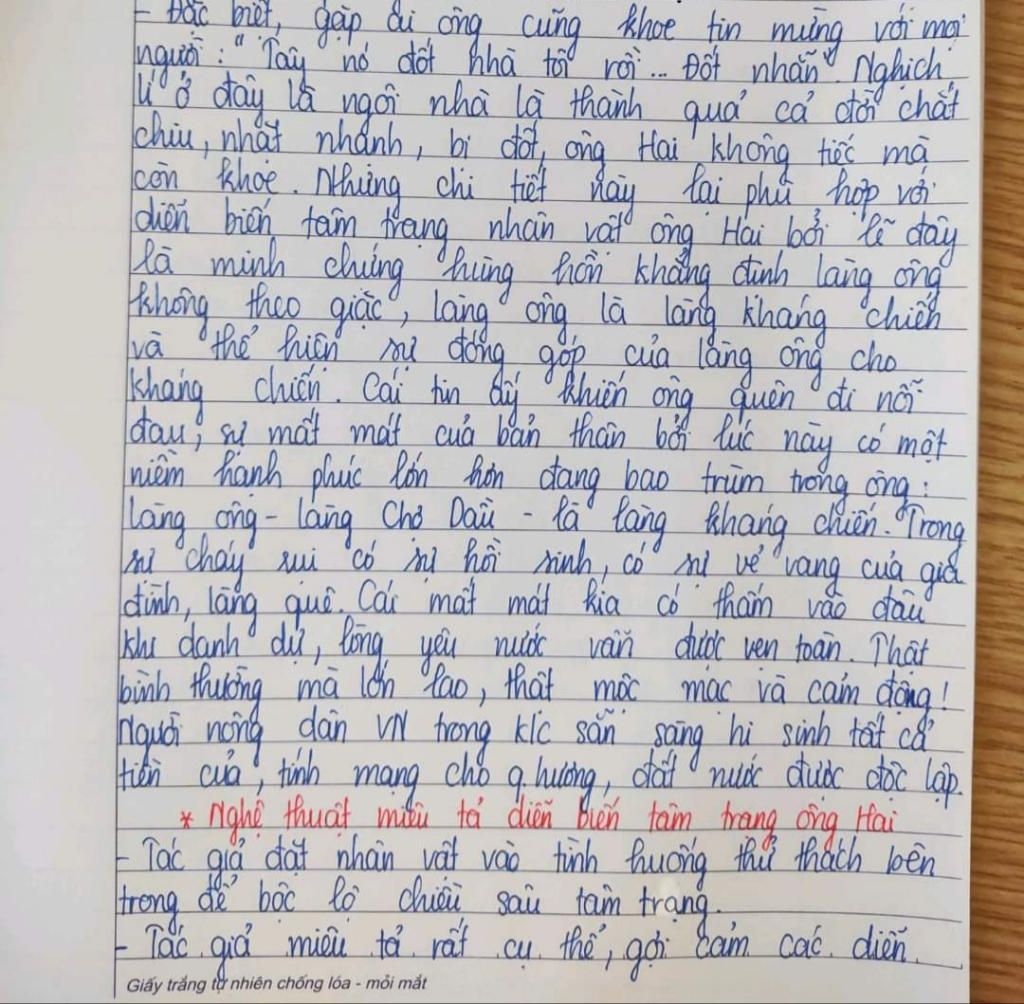 - Đặc biệt, gặp ai ông cũng khoe tin mừng với mọi
người: "Tây nó đốt nhà tôi rồi... Đốt nhẵn". Nghịch
lí ở đây là ngôi nhà là thành quả cả đời chắt
chiu, nhặt nhạnh, bị đốt, ông Hai không tiếc mà
còn khoe. Nhưng chi tiết này lại phù hợp với
diễn biến tâm trạng nhân vật ông Hai bởi lẽ đây
là minh chứng hùng hồn khẳng định làng ông
không theo giặc, làng ông là làng kháng chiến
và thể hiện sự đóng góp của làng ông cho
kháng chiến. Cái tin ấy khiến ông quên đi nỗi
đau, sự mất mát của bản thân bởi lúc này có một
niềm hạnh phúc lớn hơn đang bao trùm trong ông:
làng ông - làng Chợ Dầu - là làng kháng chiến. Trong
sự cháy rụi có sự hồi sinh, có sự vẻ vang của gia
đình, làng quê. Cái mất mát kia có thấm vào đâu
khi danh dự, lòng yêu nước vẫn được vẹn toàn. Thật
bình thường mà lớn lao, thật mộc mạc và cảm động!
Người nông dân VN trong k/c sẵn sàng hi sinh tất cả
tiền của, tính mạng cho q.hương, đất nước được độc lập.
* Nghệ thuật miêu tả diễn biến tâm trạng ông Hai
- Tác giả đặt nhân vật vào tình huống thử thách bên
trong để bộc lộ chiều sâu tâm trạng.
- Tác giả miêu tả rất cụ thể, gợi cảm các diễn
Giấy trắng tự nhiên chống lóa - mỏi mắt